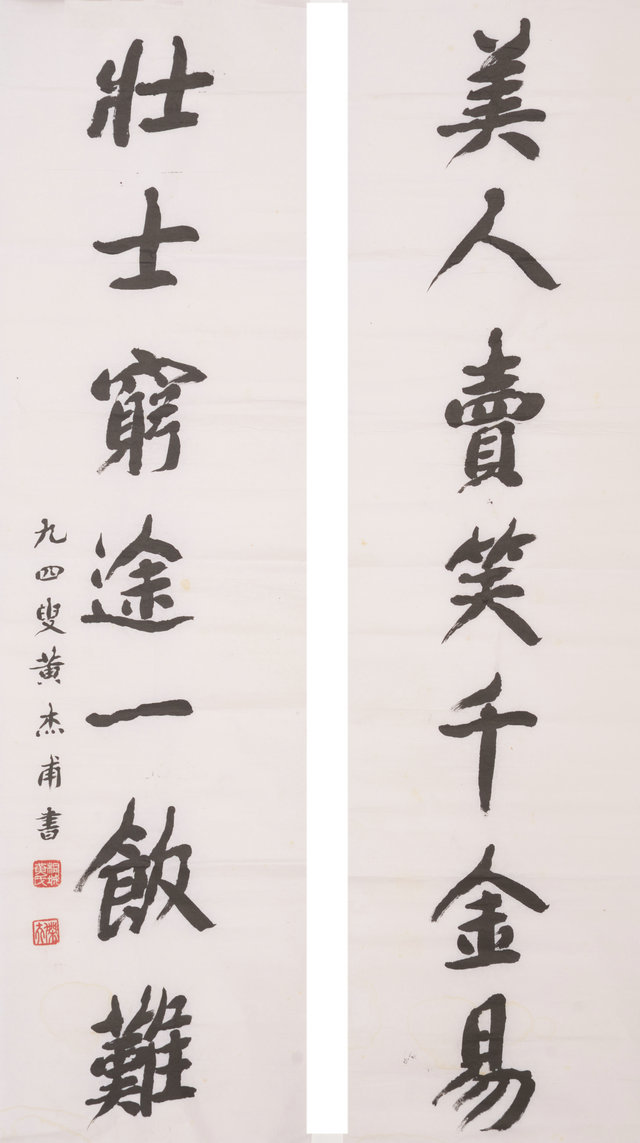 美人賣笑千金易
壯士窮途一飯難
九四叟黄杰甫書